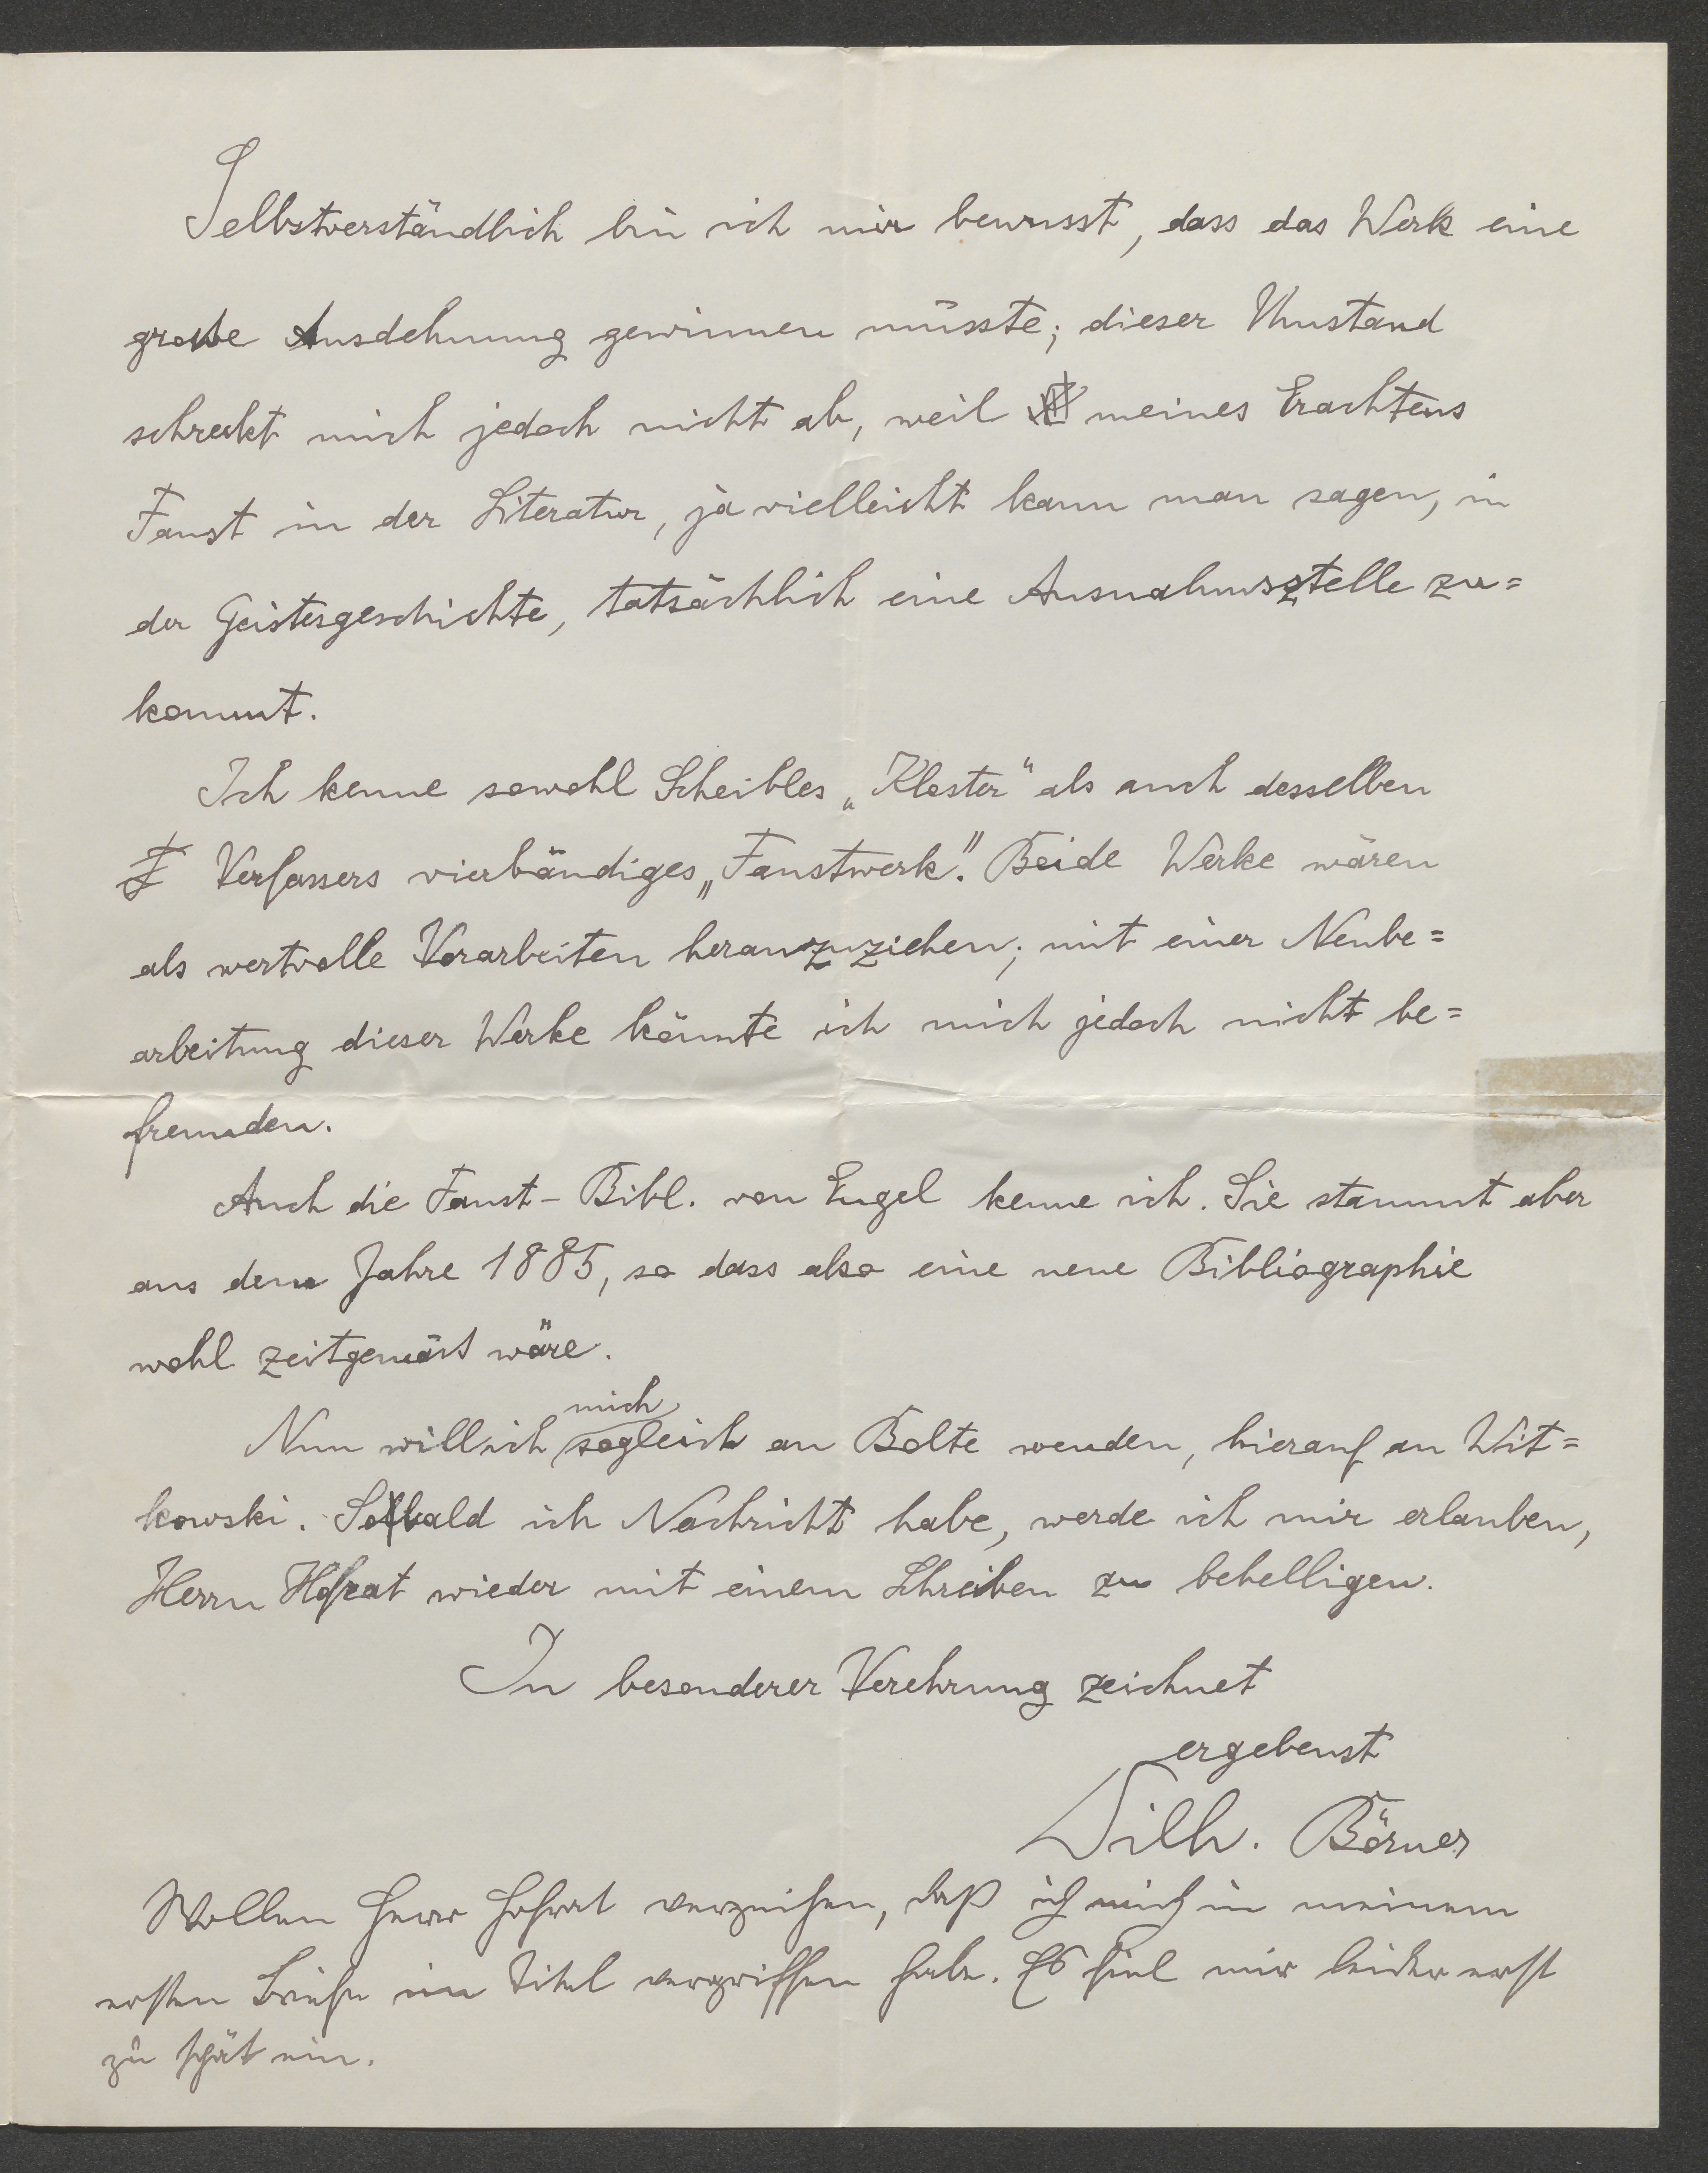 Selbstverständlich bin ich mir bewusst, dass das Werk eine
große Ausdehnung gewinnen müsste; dieser Umstand
schreckt mich jedoch nicht ab, weil meines Erachtens
Faust in der Literatur, ja vielleicht kann man sagen, in
der Geistesgeschichte, tatsächlich eine Ausnahmsstelle zu=
kommt.
Ich kenne sowohl Scheibles „Kloster" als auch desselben
Verfassers vierbändiges „Faustwerk". Beide Werke wären
als wertvolle Vorarbeiten heranzuziehen; mit einer Neube=
arbeitung dieser Werke könnte ich mich jedoch nicht be=
freunden.
Auch die Faust-Bibl. von Engel kenne ich. Sie stammt aber
aus dem Jahre 1885, so dass also eine neue Bibliographie
wohl zeitgemäß wäre.
Nun will ich mich sogleich an Bolte wenden, hierauf an Wit=
kowski. Sobald ich Nachricht habe, werde ich mir erlauben,
Herrn Hofrat wieder mit einem Schreiben zu behelligen.
In besonderer Verehrung zeichnet
ergebenst
Wilh. Börner
Wollen Herr Hofrat verzeihen, daß ich mich in meinem
ersten Briefe im Titel vergriffen habe. Es fiel mir leider erst
zu spät ein.